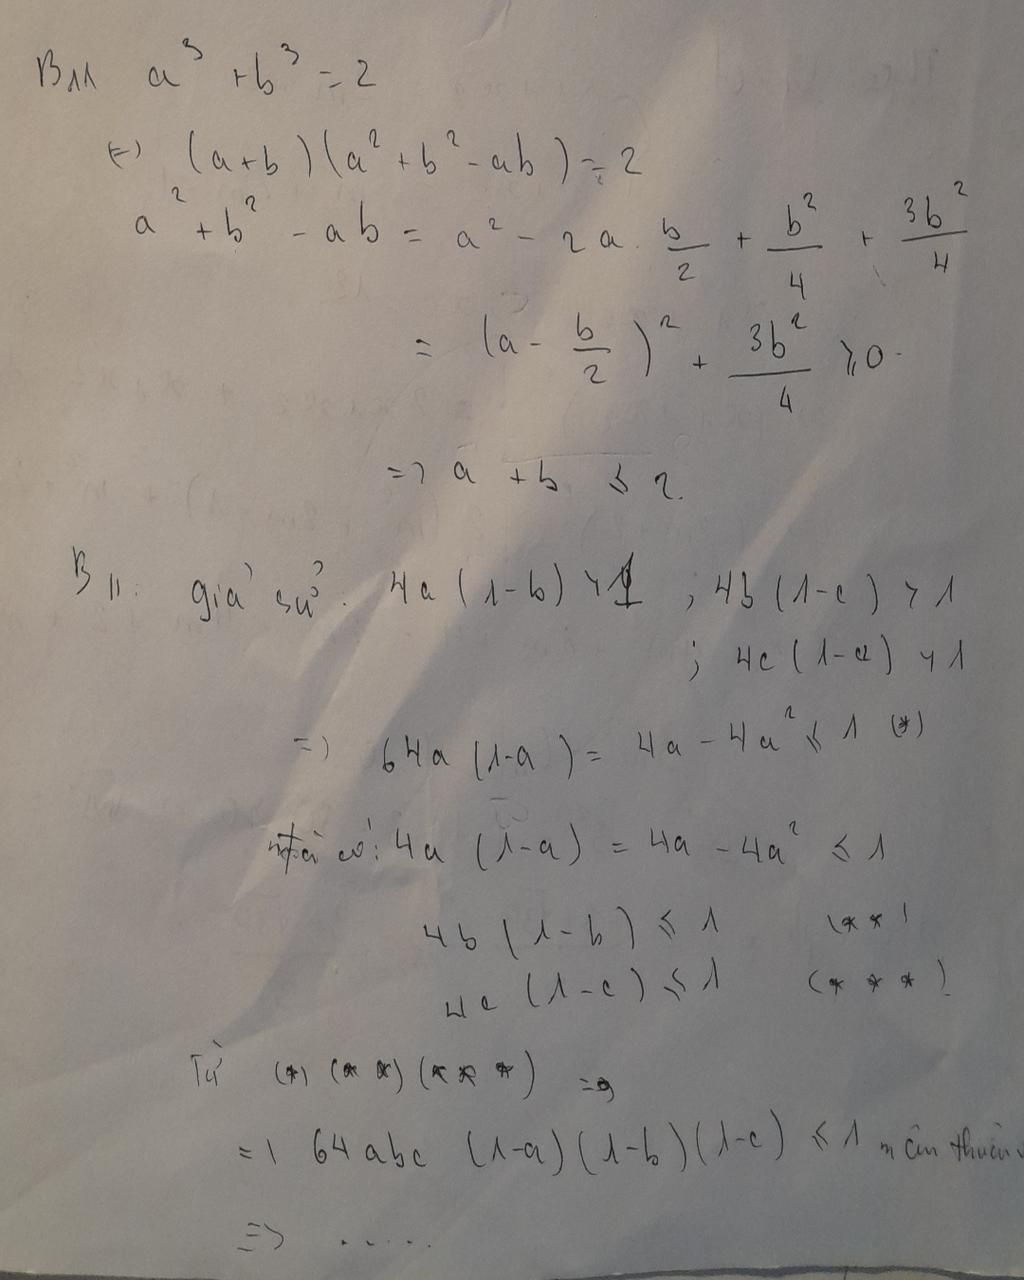 B11 a³ + b³ = 2
(=) (a+b)(a² + b² - ab) = 2
a² + b² - ab = a² - 2a. b/2 + b²/4 + 3b²/4
= (a - b/2)² + 3b²/4 ≥ 0.
=> a + b ≤ 2.
B11: giả sử: 4a (1-b) > 1 ; 4b (1-c) > 1
; 4c (1-a) > 1
=) 64a (1-a) = 4a - 4a² ≤ 1 (*)
mà có: 4a (1-a) = 4a - 4a² ≤ 1
4b (1-b) ≤ 1 (**)
4c (1-c) ≤ 1 (***)
Từ (*) (**) (***) =>
=) 64abc (1-a)(1-b)(1-c) ≤ 1 mâu thuẫn
=> .....